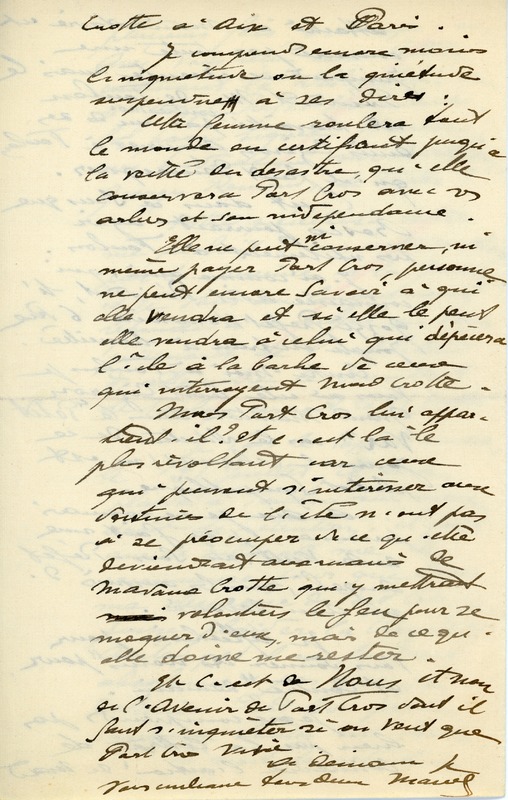 Crotte à Aix et Paris.
Je comprends encore moins
l'inquiétude ou la quiétude
suspendue à ses dires.
Cette femme roulera tout
le monde en certifiant jusqu'à
la veille du désastre, qu'elle
conservera Port Cros avec vos
arbres et son indépendance.
Elle ne peut ni conserver, ni
même payer Port Cros, personne
ne peut encore savoir à qui
elle vendra et si elle le peut
elle vendra à celui qui dépècera
l'île à la barbe de ceux
qui interrogent Mad Crotte.
Mais Port Cros lui appar-
tient-il? Et c'est là le
plus révoltant car ceux
qui peuvent s'intéresser aux
destinées de l'île n'ont pas
à se préoccuper de ce qu'elle
deviendrait aux mains de
Madame Crotte qui y mettrait
volontiers le feu pour se
moquer d'eux, mais de ce qu'
elle doive me rester.
Et c'est de Nous et non
de l'avenir de Port Cros dont il
faut s'inquiéter si on veut que
Port Cros vive.
à demain
Marcel